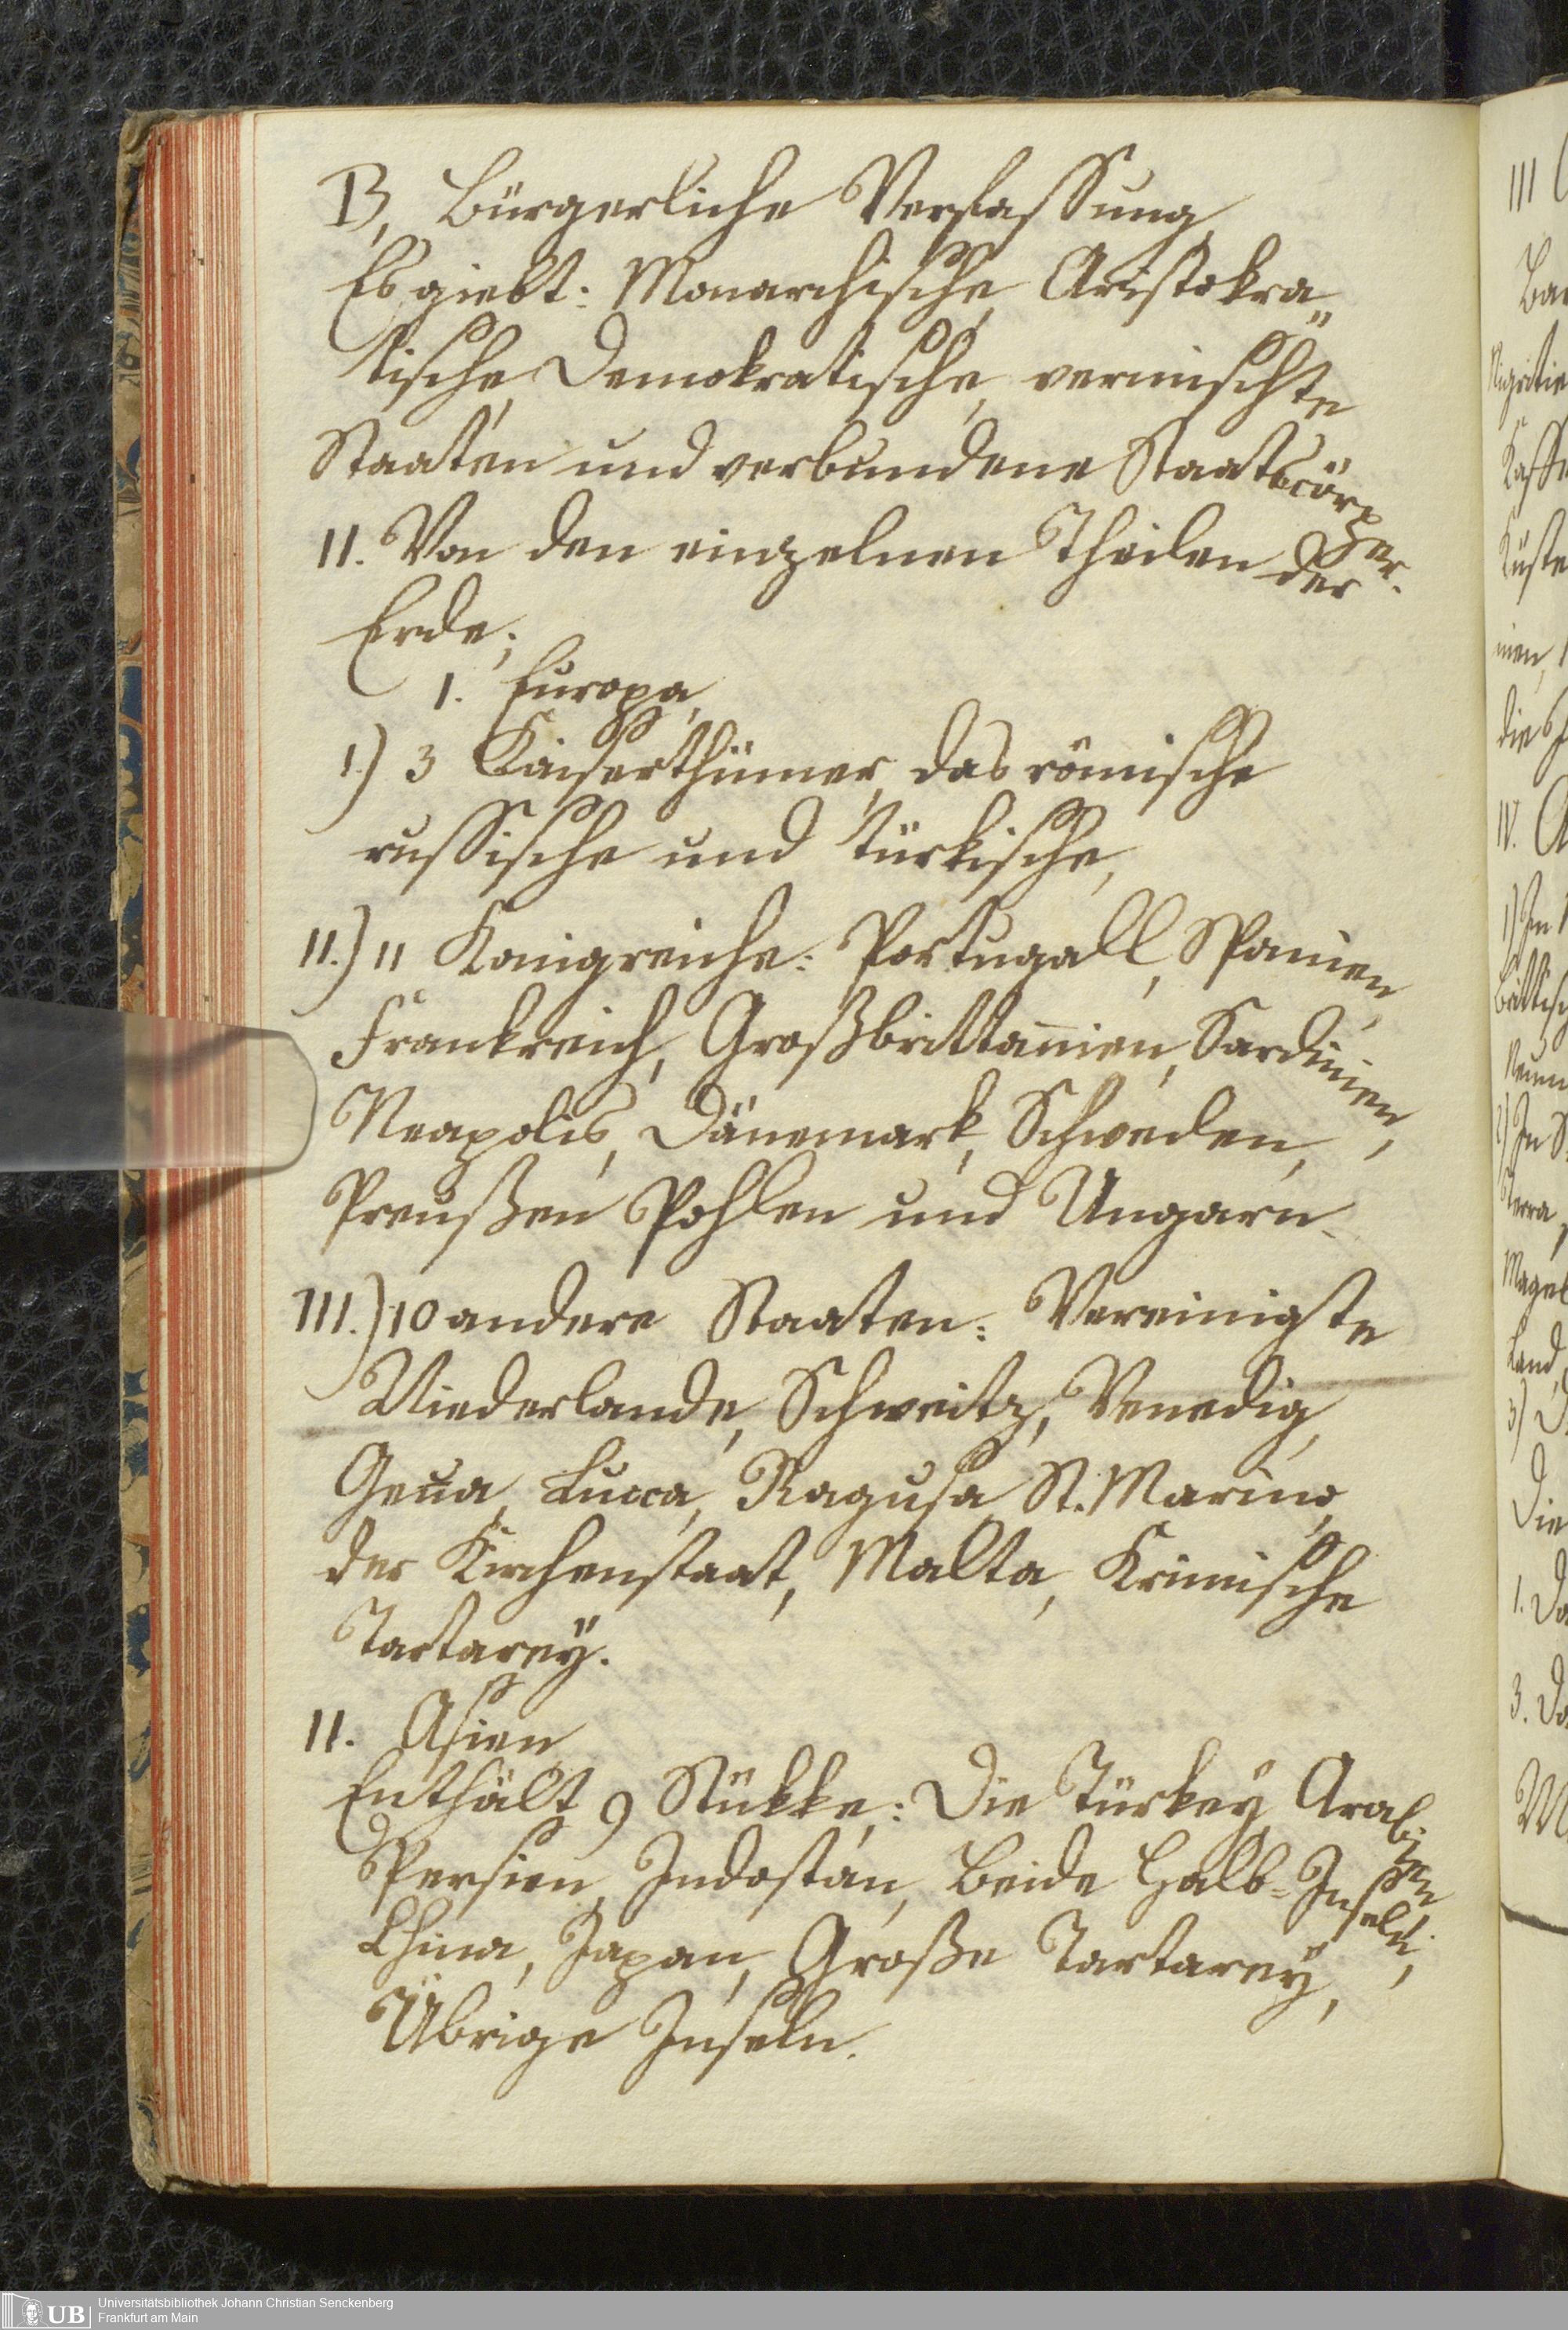 B, Bürgerliche Verfassung,
Es giebt: Monarchische, Aristokra„
tische, Demokratische, vermischte
Staaten und verbundene Staatscörper.
II. Von den einzelnen Theilen der
Erde;
1. Europa,
I.) 3 Kaiserthümer, das römische
russische und türkische,
II.) 11 Konigreiche: Portugall, Spanien,
Frankreich, Großbrittan̄ien, Sardinien,
Neapolis, Dänemark, Schweden,
Preußen Pohlen und Ungarn.
III.) 10 andere Staaten: Vereinigte
Niederlande, Schweitz, Venedig,
Genua, Lucca, Ragusa, St. Marino,
der Kirchenstaat, Malta, Krimische
Tartarey.
II. Asien
Enthält 9 Stükke: Die Türkey, Arabien
Persien, Indostan, beide Halb-Inseln,
China, Japan, Große Tartarey,
Übrige Inseln.
III
Nigritie
Kaffe
Küste
IV.
Land,
Die
UB Universitätsbibliothek Johann Christian Senckenberg
Frankfurt am Main